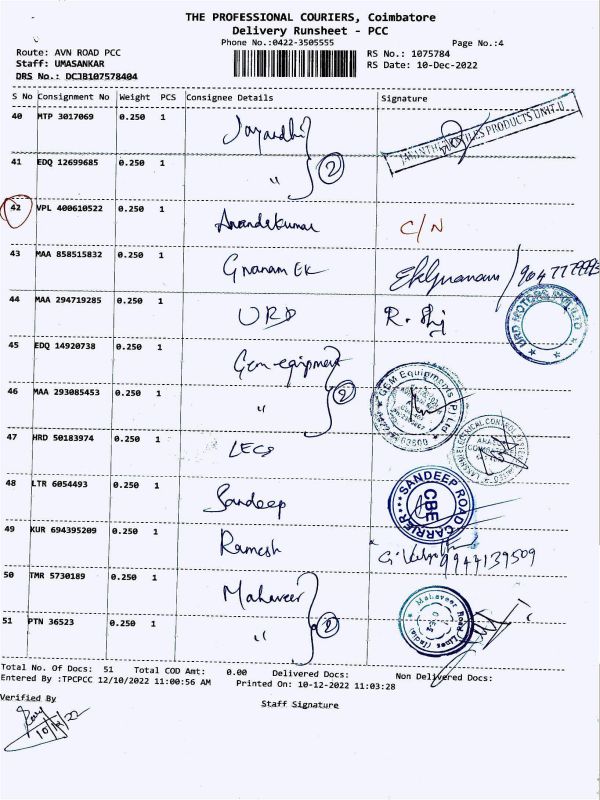 THE PROFESSIONAL COURIERS, Coimbatore
Delivery Runsheet - PCC
Phone No.:0422-3505555 Page No.:4
Route: AVN ROAD PCC RS No.: 1075784
Staff: UMASANKAR RS Date: 10-Dec-2022
DRS No.: DCJB107578404
S No Consignment No Weight PCS Consignee Details Signature
40 MTP 3017069 0.250 1 Jayandhi
41 EDQ 12699685 0.250 1 " 2
42 VPL 400610522 0.250 1 Anandakumar C/N
43 MAA 858515832 0.250 1 Gnanam EK EKGnanam
44 MAA 294719285 0.250 1 URD
URD MOTORS PVT LTD
45 EDQ 14920738 0.250 1 Gem-equipment
46 MAA 293085453 0.250 1 " 2
GEM Equipments (P) Ltd
47 HRD 50183974 0.250 1 LECS
48 LTR 6054493 0.250 1 Sandeep
SANDEEP ROAD CARRIER CBE
49 KUR 694395209 0.250 1 Ramesh 9944139509
50 TMR 5730189 0.250 1 Mahaveer
51 PTN 36523 0.250 1 " 2
Mahaveer Road Lines (India)
Total No. Of Docs: 51 Total COD Amt: 0.00 Delivered Docs: Non Delivered Docs:
Entered By :TPCPCC 12/10/2022 11:00:56 AM Printed On: 10-12-2022 11:03:28
Verified By Staff Signature
10/12/22